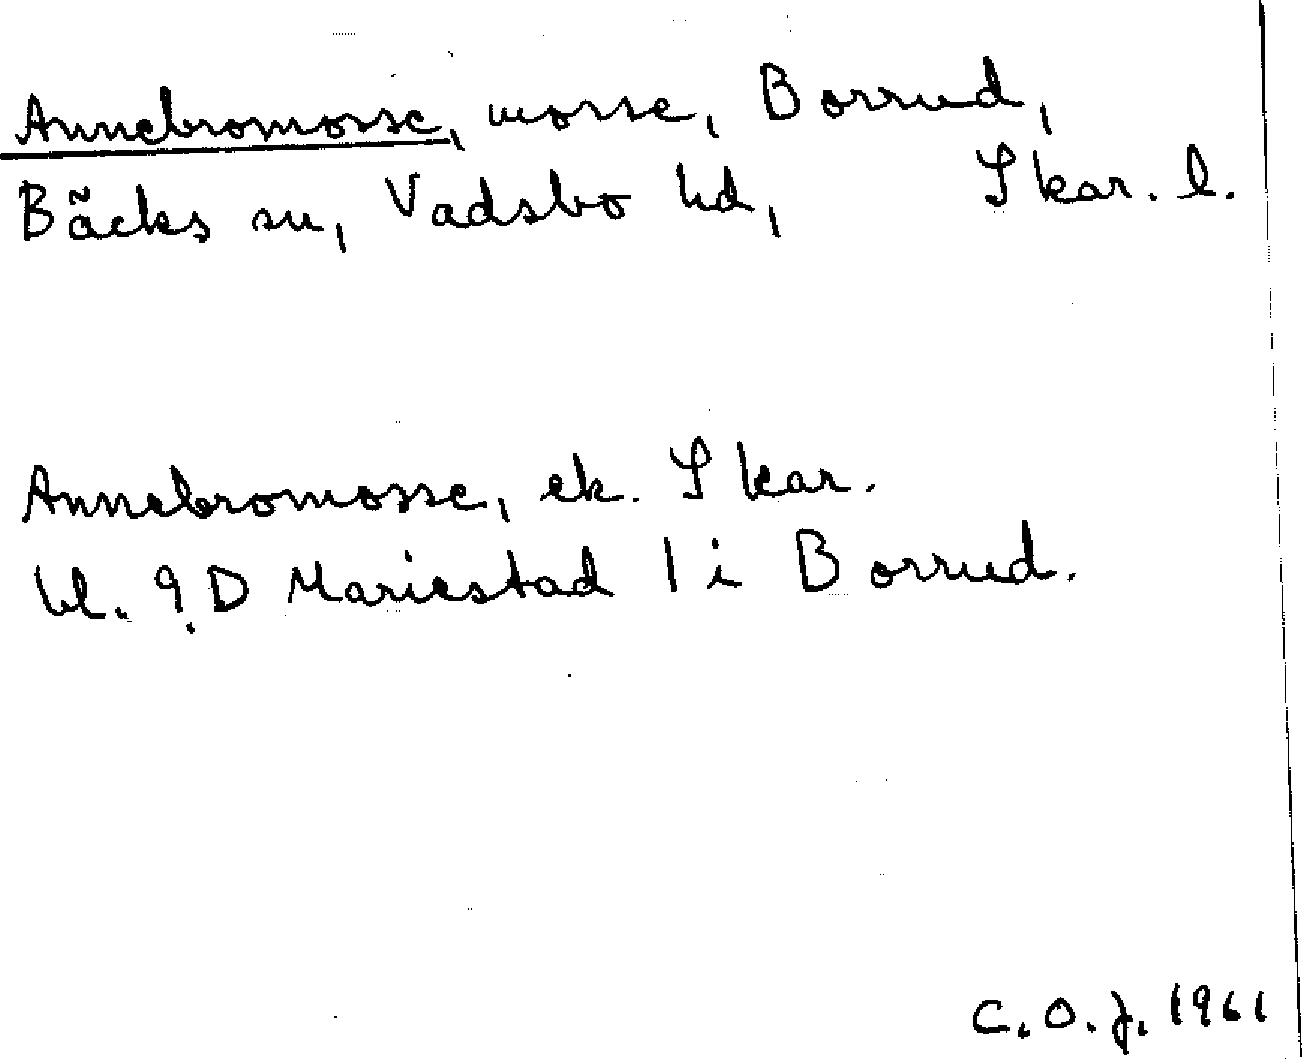 Annebromosse, mosse, Borrud,
Bäcks sn, Vadsbo hd, Skar. l.
Annebromosse, ek. Skar.
bl. 9D Mariestad 1 i Borrud.
C.O.J. 1961